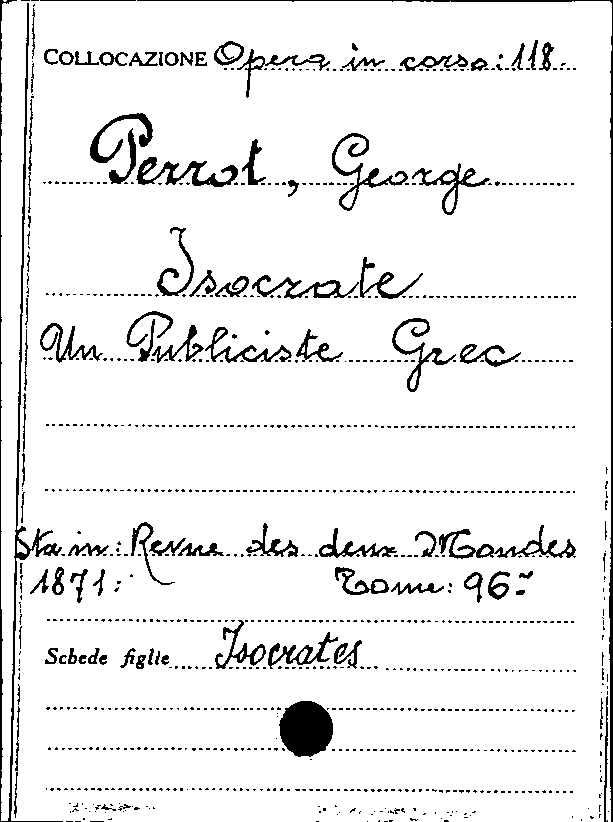 COLLOCAZIONE Opera in corso: 118.
Perrot, George
Isocrate
Un Publiciste Grec
Sta in: Revue des deux Mondes
1871: Tome: 96-
Schede figlie Isocrates